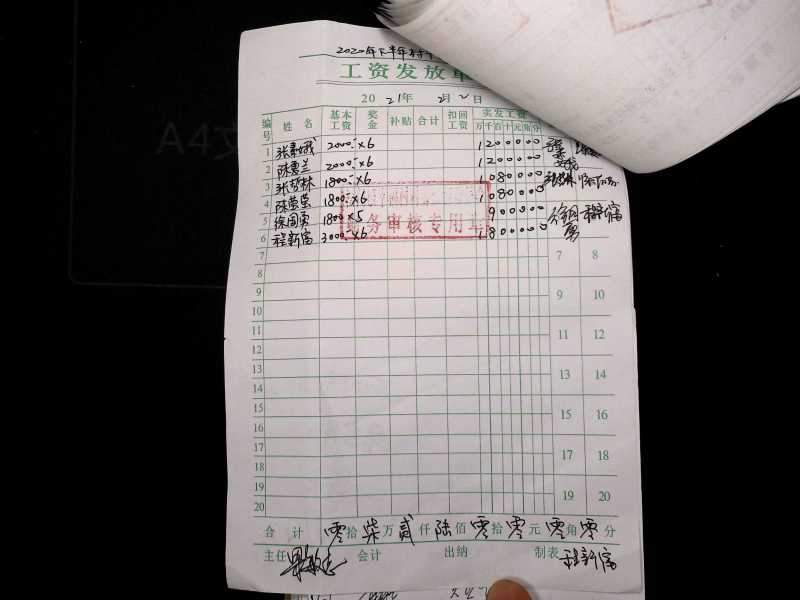 2020年下半年村干
工资发放单
2021年 2月2日
编号 姓名 基本工资 奖金 补贴 合计 扣回工资 实发工资
万 千 百 十 元 角 分
1 张 2000 ×6 1 2 0 0 0 0 0
2 陈惠兰 2000 ×6 1 2 0 0 0 0 0
3 张 林 1800 ×6 1 0 8 0 0 0 0
4 陈莹莹 1800 ×6 1 0 8 0 0 0 0
5 徐国勇 1800 ×5 9 0 0 0 0 0
6 程新富 3000 ×6 1 8 0 0 0 0 0
务审核专用章
7 7 8
8
9 9 10
10
11 11 12
12
13 13 14
14
15 15 16
16
17 17 18
18
19 19 20
20
合计 零拾柒万贰仟陆佰零拾零元零角零分
主任 会计 出纳 制表 程新富